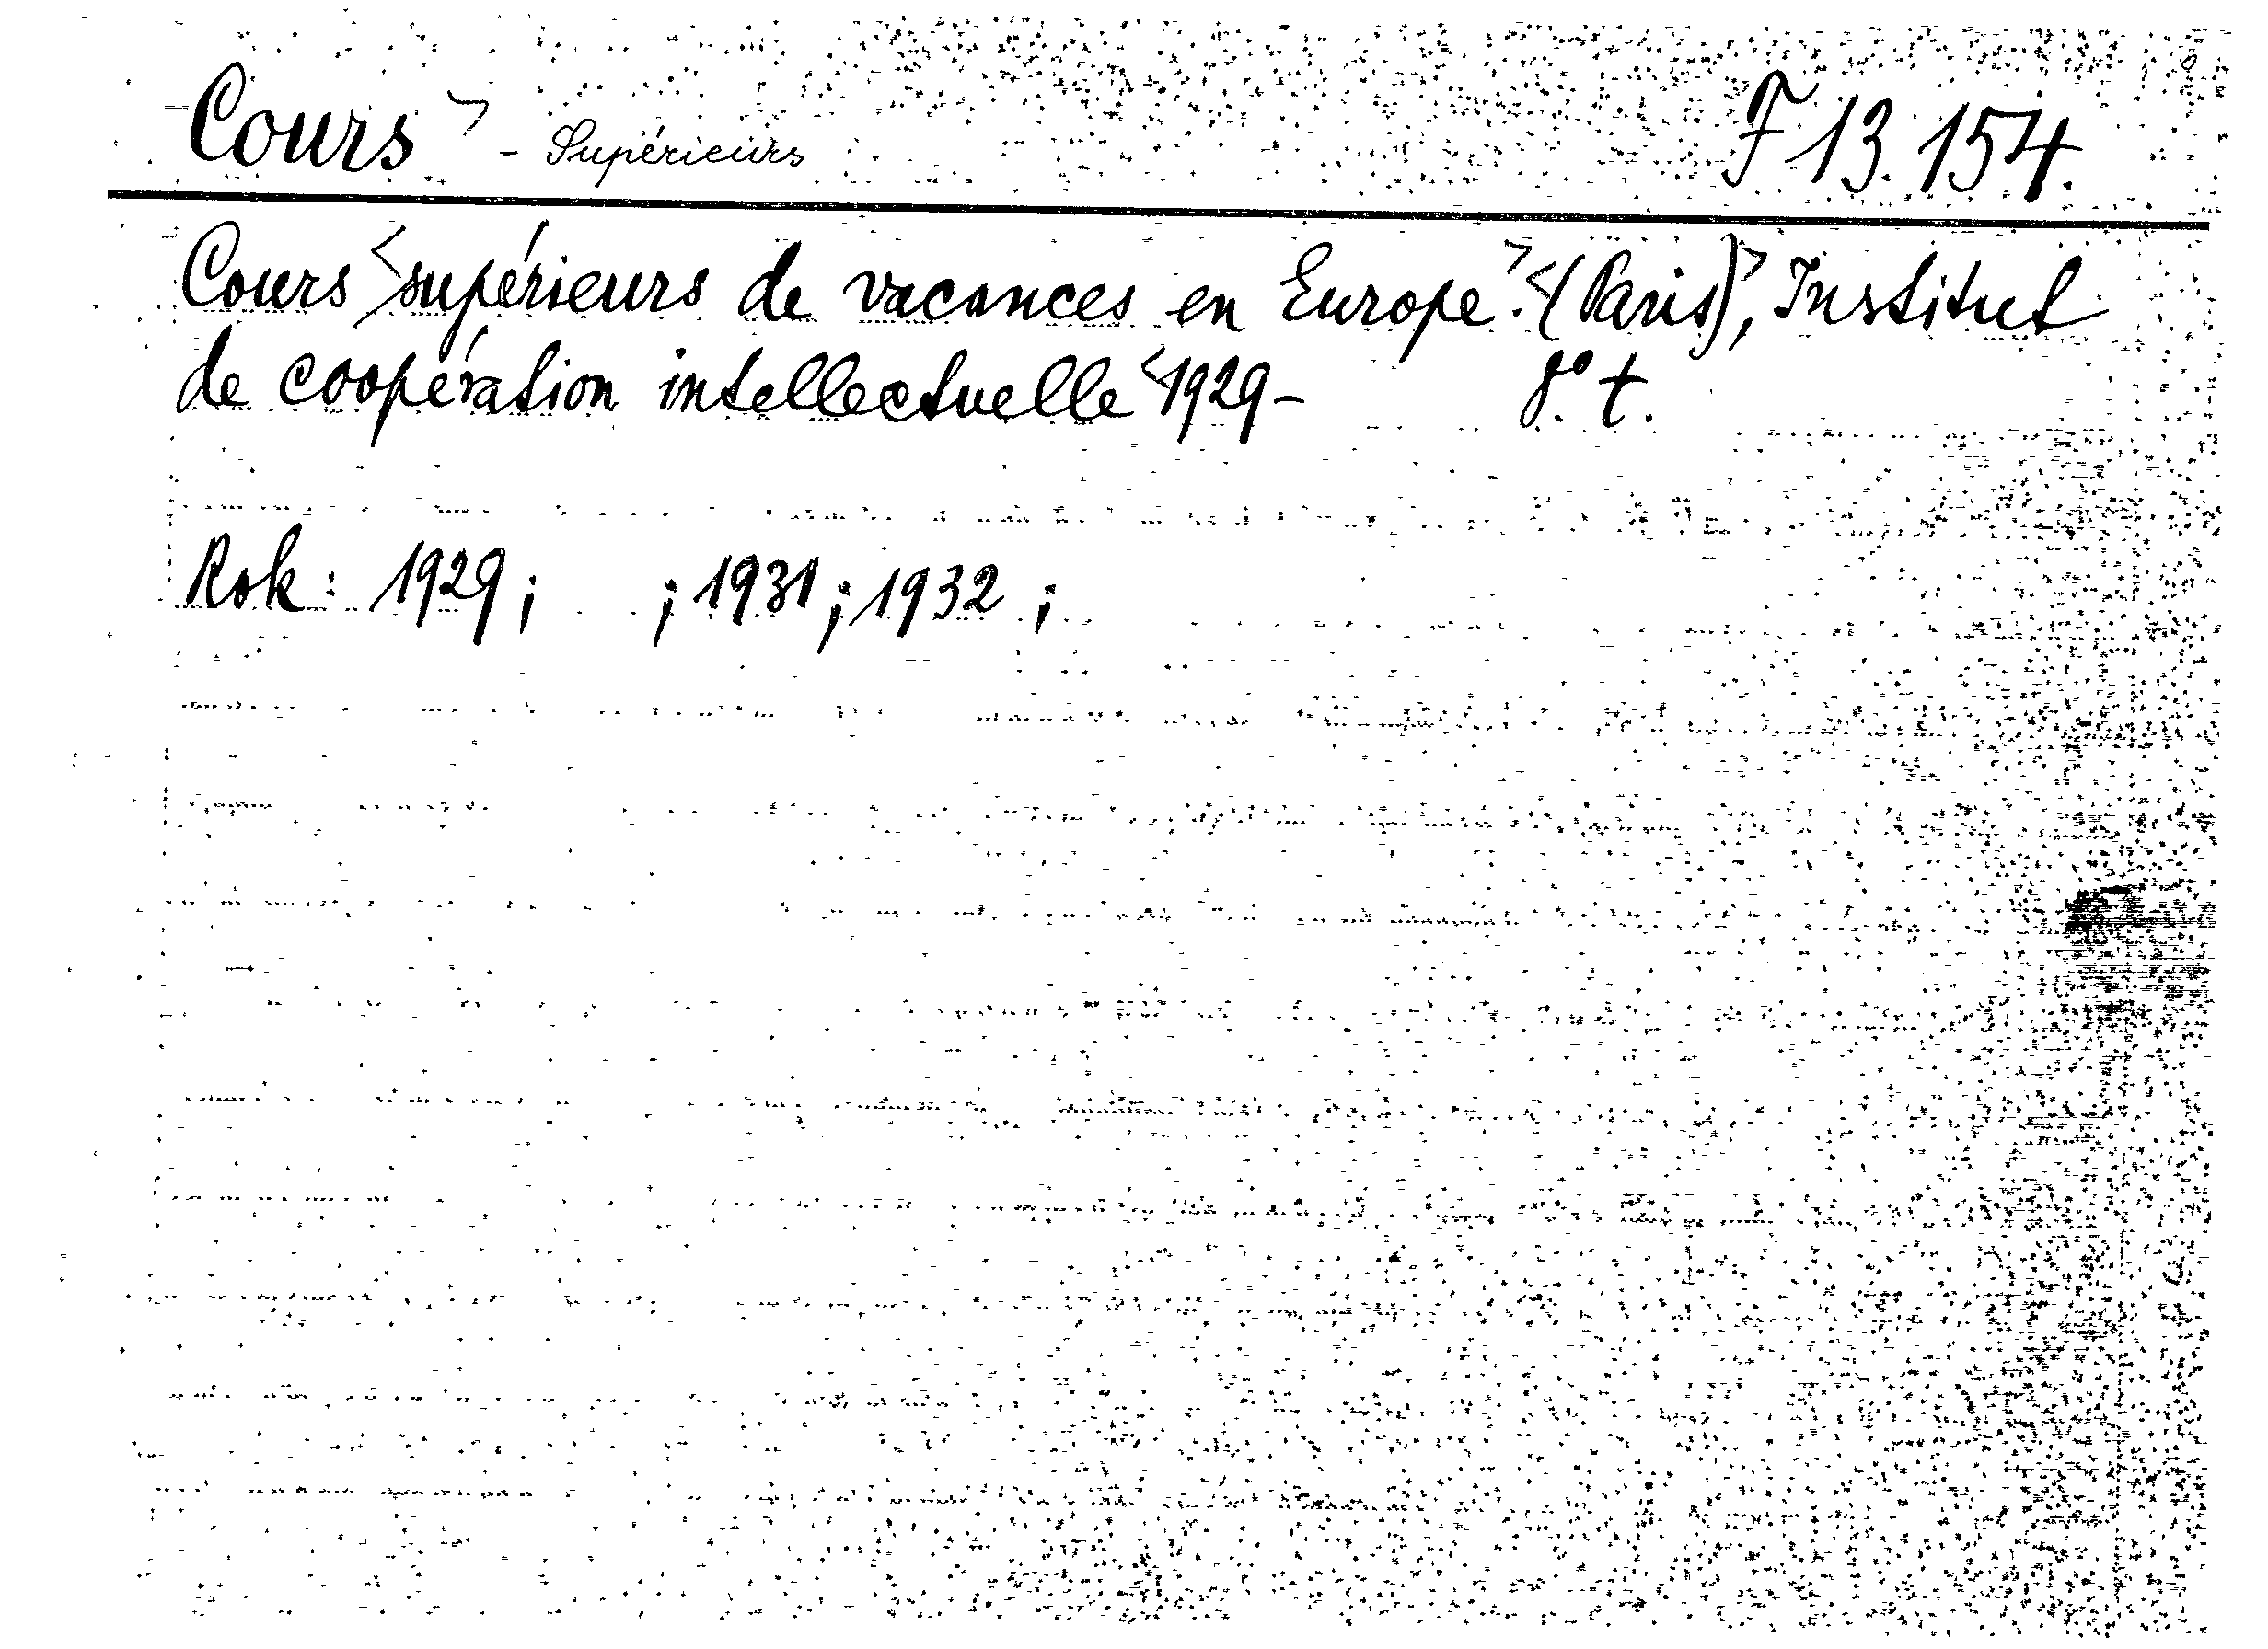 Cours > - Supérieurs F 13.154.
Cours <supérieurs de vacances en Europe>. <(Paris)>, Institut
de coopération intellectuelle <1929- 8° t.
Rok: 1929; ; 1931; 1932 ;